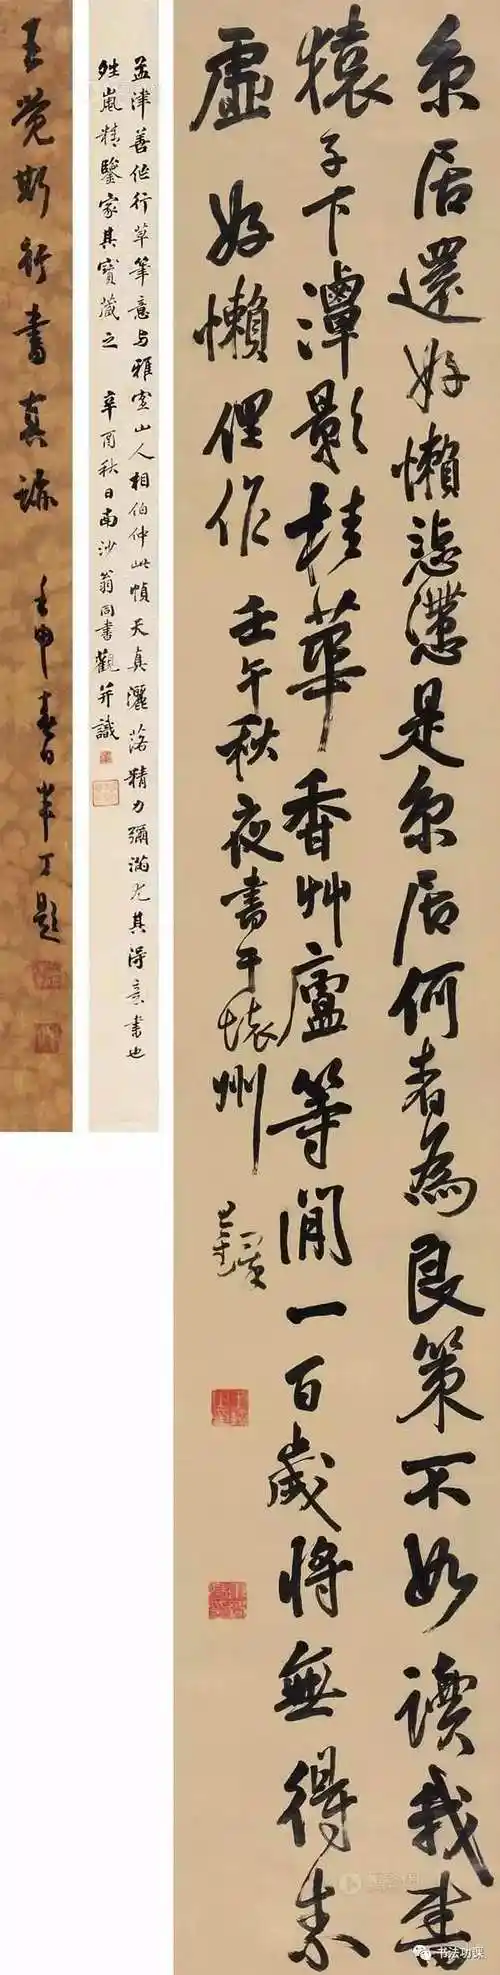 京居還好懶懲憊是京居何者為良策不如讀我書
猿子下潭影桂華香艸廬等閒一百歲將無得素
虛 好懶俚作 壬午秋夜書于懷州
王鐸
孟津善作行草筆意与雅宜山人相伯仲此幀天真灑落精力彌滿尤其得意書也
姓嵐精鑒家其寶藏之 辛酉秋日南沙翁同書觀并識
王覺斯行書真跡 壬申春日半丁題
书法功课